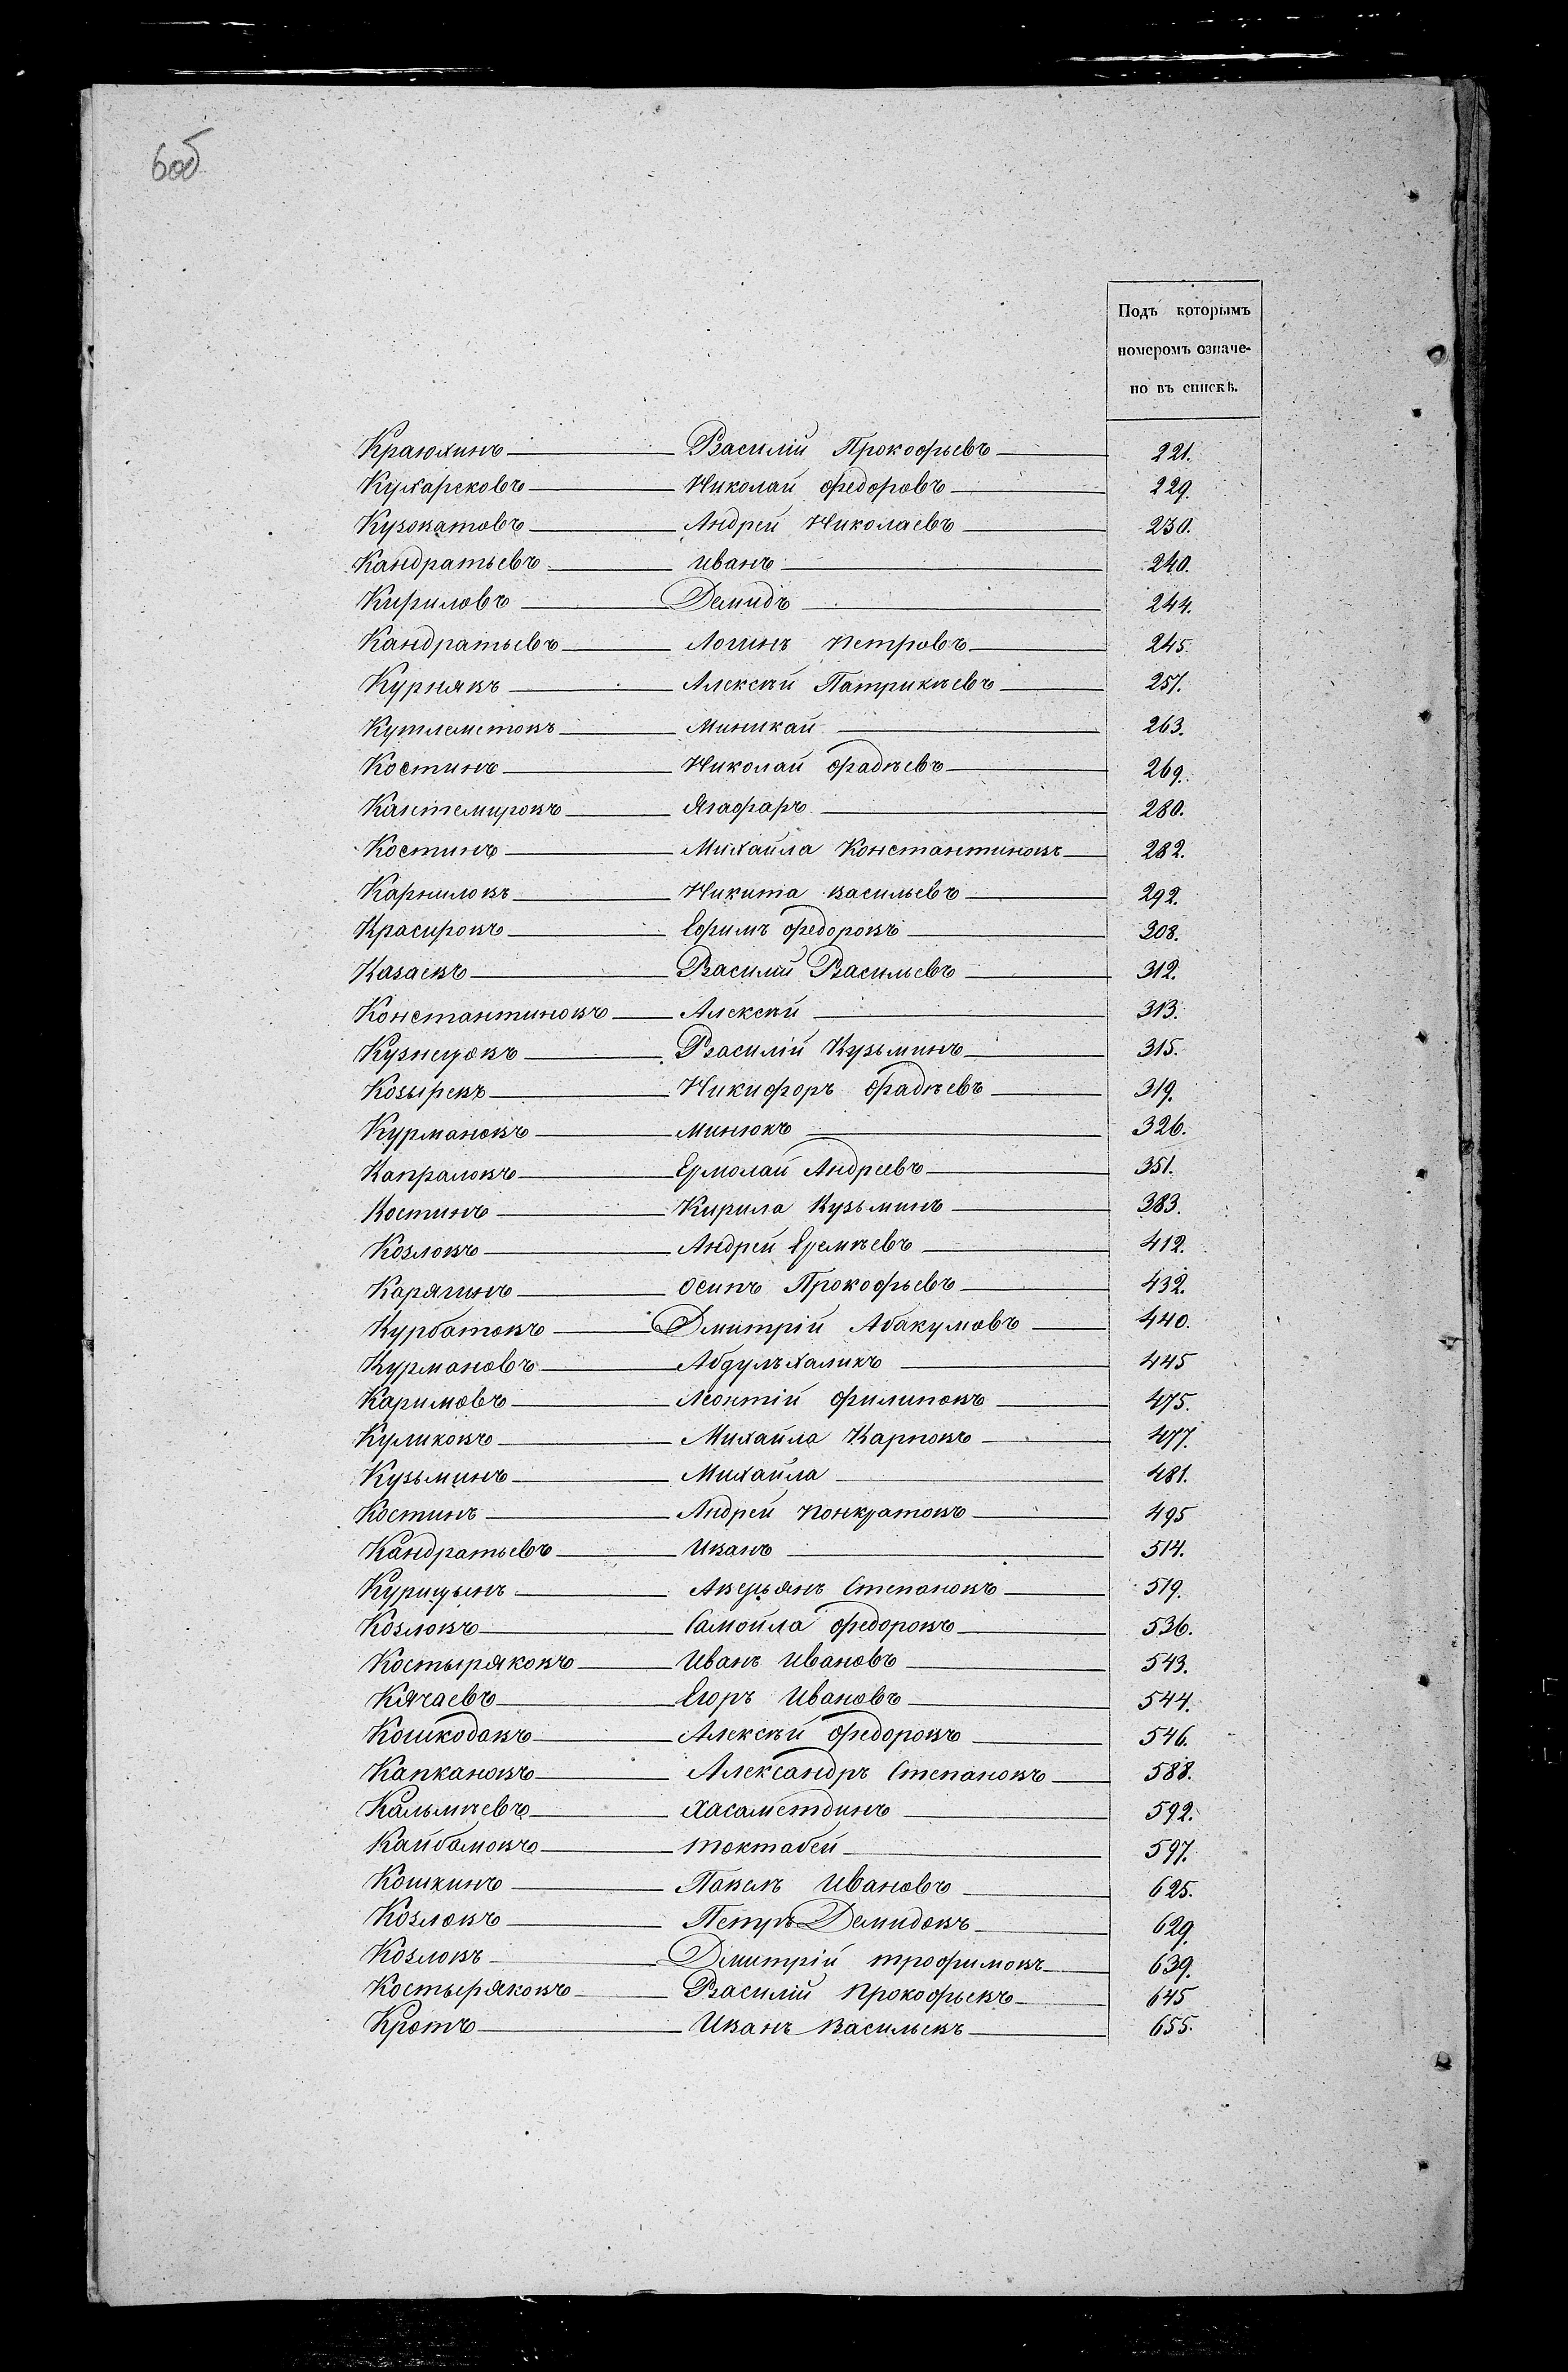 6об
Подъ которымъ
номеромъ означе-
но въ спискѣ.
Краюхинъ Василій Прокофьевъ 221.
Кухарсковъ Николай Федоровъ 229.
Кузоватовъ Андрей Николаевъ 230.
Кандратьевъ Иванъ 240.
Кириловъ Демидъ 244.
Кандратьевъ Логинъ Петровъ 245.
Курнявъ Алексѣй Патрикѣевъ 257.
Кутлеметовъ Миникай 263.
Костинъ Николай Фадѣевъ 269.
Кантемировъ Ягафаръ 280.
Костинъ Михайла Константиновъ 282.
Карниловъ Никита Васильевъ 292.
Красировъ Ефимъ Федоровъ 308.
Казаевъ Василій Васильевъ 312.
Константиновъ Алексѣй 313.
Кузнецовъ Василій Кузьминъ 315.
Козыревъ Никифоръ Фадѣевъ 319.
Курмановъ Минюкъ 326.
Капраловъ Ермолай Андреевъ 351.
Костинъ Кирила Кузьминъ 383.
Козловъ Андрей Еремѣевъ 412.
Карягинъ Осипъ Прокофьевъ 432.
Курбатовъ Дмитрій Абакумовъ 440.
Курмановъ Абдулъхаликъ 445
Каримовъ Леонтій Филиповъ 475.
Куликовъ Михайла Карповъ 477.
Кузьминъ Михайла 481.
Костинъ Андрей Понкратовъ 495
Кандратьевъ Иванъ 514.
Курицынъ Аверьянъ Степановъ 519.
Козловъ Самойла Федоровъ 536.
Костыряковъ Иванъ Ивановъ 543.
Кячаевъ Егоръ Ивановъ 544.
Кошкодавъ Алексѣй Федоровъ 546.
Капкановъ Александръ Степановъ 588.
Кальмѣевъ Хасаметдинъ 592.
Кайбамовъ Токтабей 597.
Кошкинъ Павелъ Ивановъ 625.
Козловъ Петръ Демидовъ 629.
Козловъ Дмитрій Трофимовъ 639.
Костыряковъ Василій Прокофьевъ 645
Кротъ Иванъ Васильевъ 655.